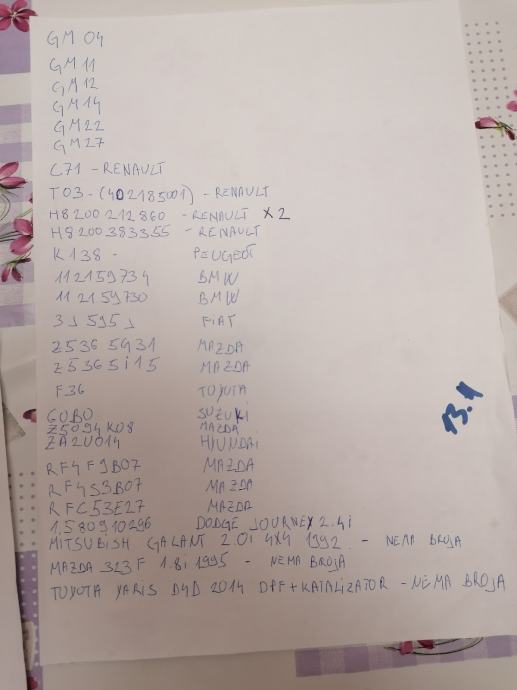 GM 04
GM 11
GM 12
GM 14
GM 22
GM 27
C71 - RENAULT
T03 - (402185001) - RENAULT
H8200212860 - RENAULT X2
H8200383355 - RENAULT
K138 - PEUGEOT
112159734 BMW
112159730 BMW
3J595J FIAT
Z5365G31 MAZDA
Z5365i15 MAZDA
F36 TOYOTA
GOBO SUZUKI
Z5094K08 MAZDA
ZA2U014 HJUNDAI
RF4F9B07 MAZDA
RF4S3B07 MAZDA
RFC53E27 MAZDA
1,580910296 DODGE JOURNEY 2.4i
MITSUBISH GALANT 2.0i 4X4 1992 - NEMA BROJA
MAZDA 323F 1.8i 1995 - NEMA BROJA
TOYOTA YARIS D4D 2014 DPF + KATALIZATOR - NEMA BROJA
13.1